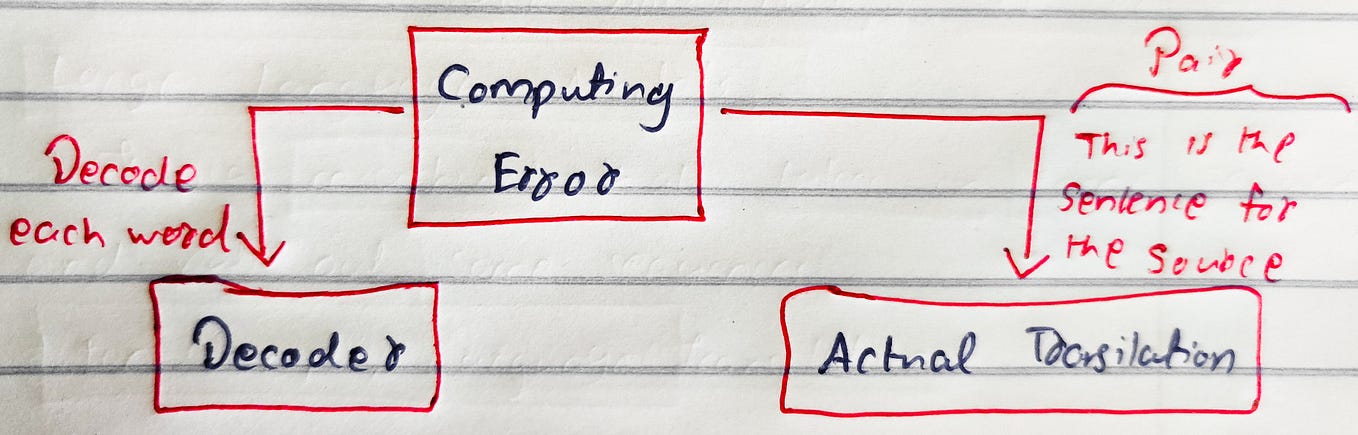 Computing
Error
Pair
Decode
each word
This is the
sentence for
the source
Decoder
Actual Transilation